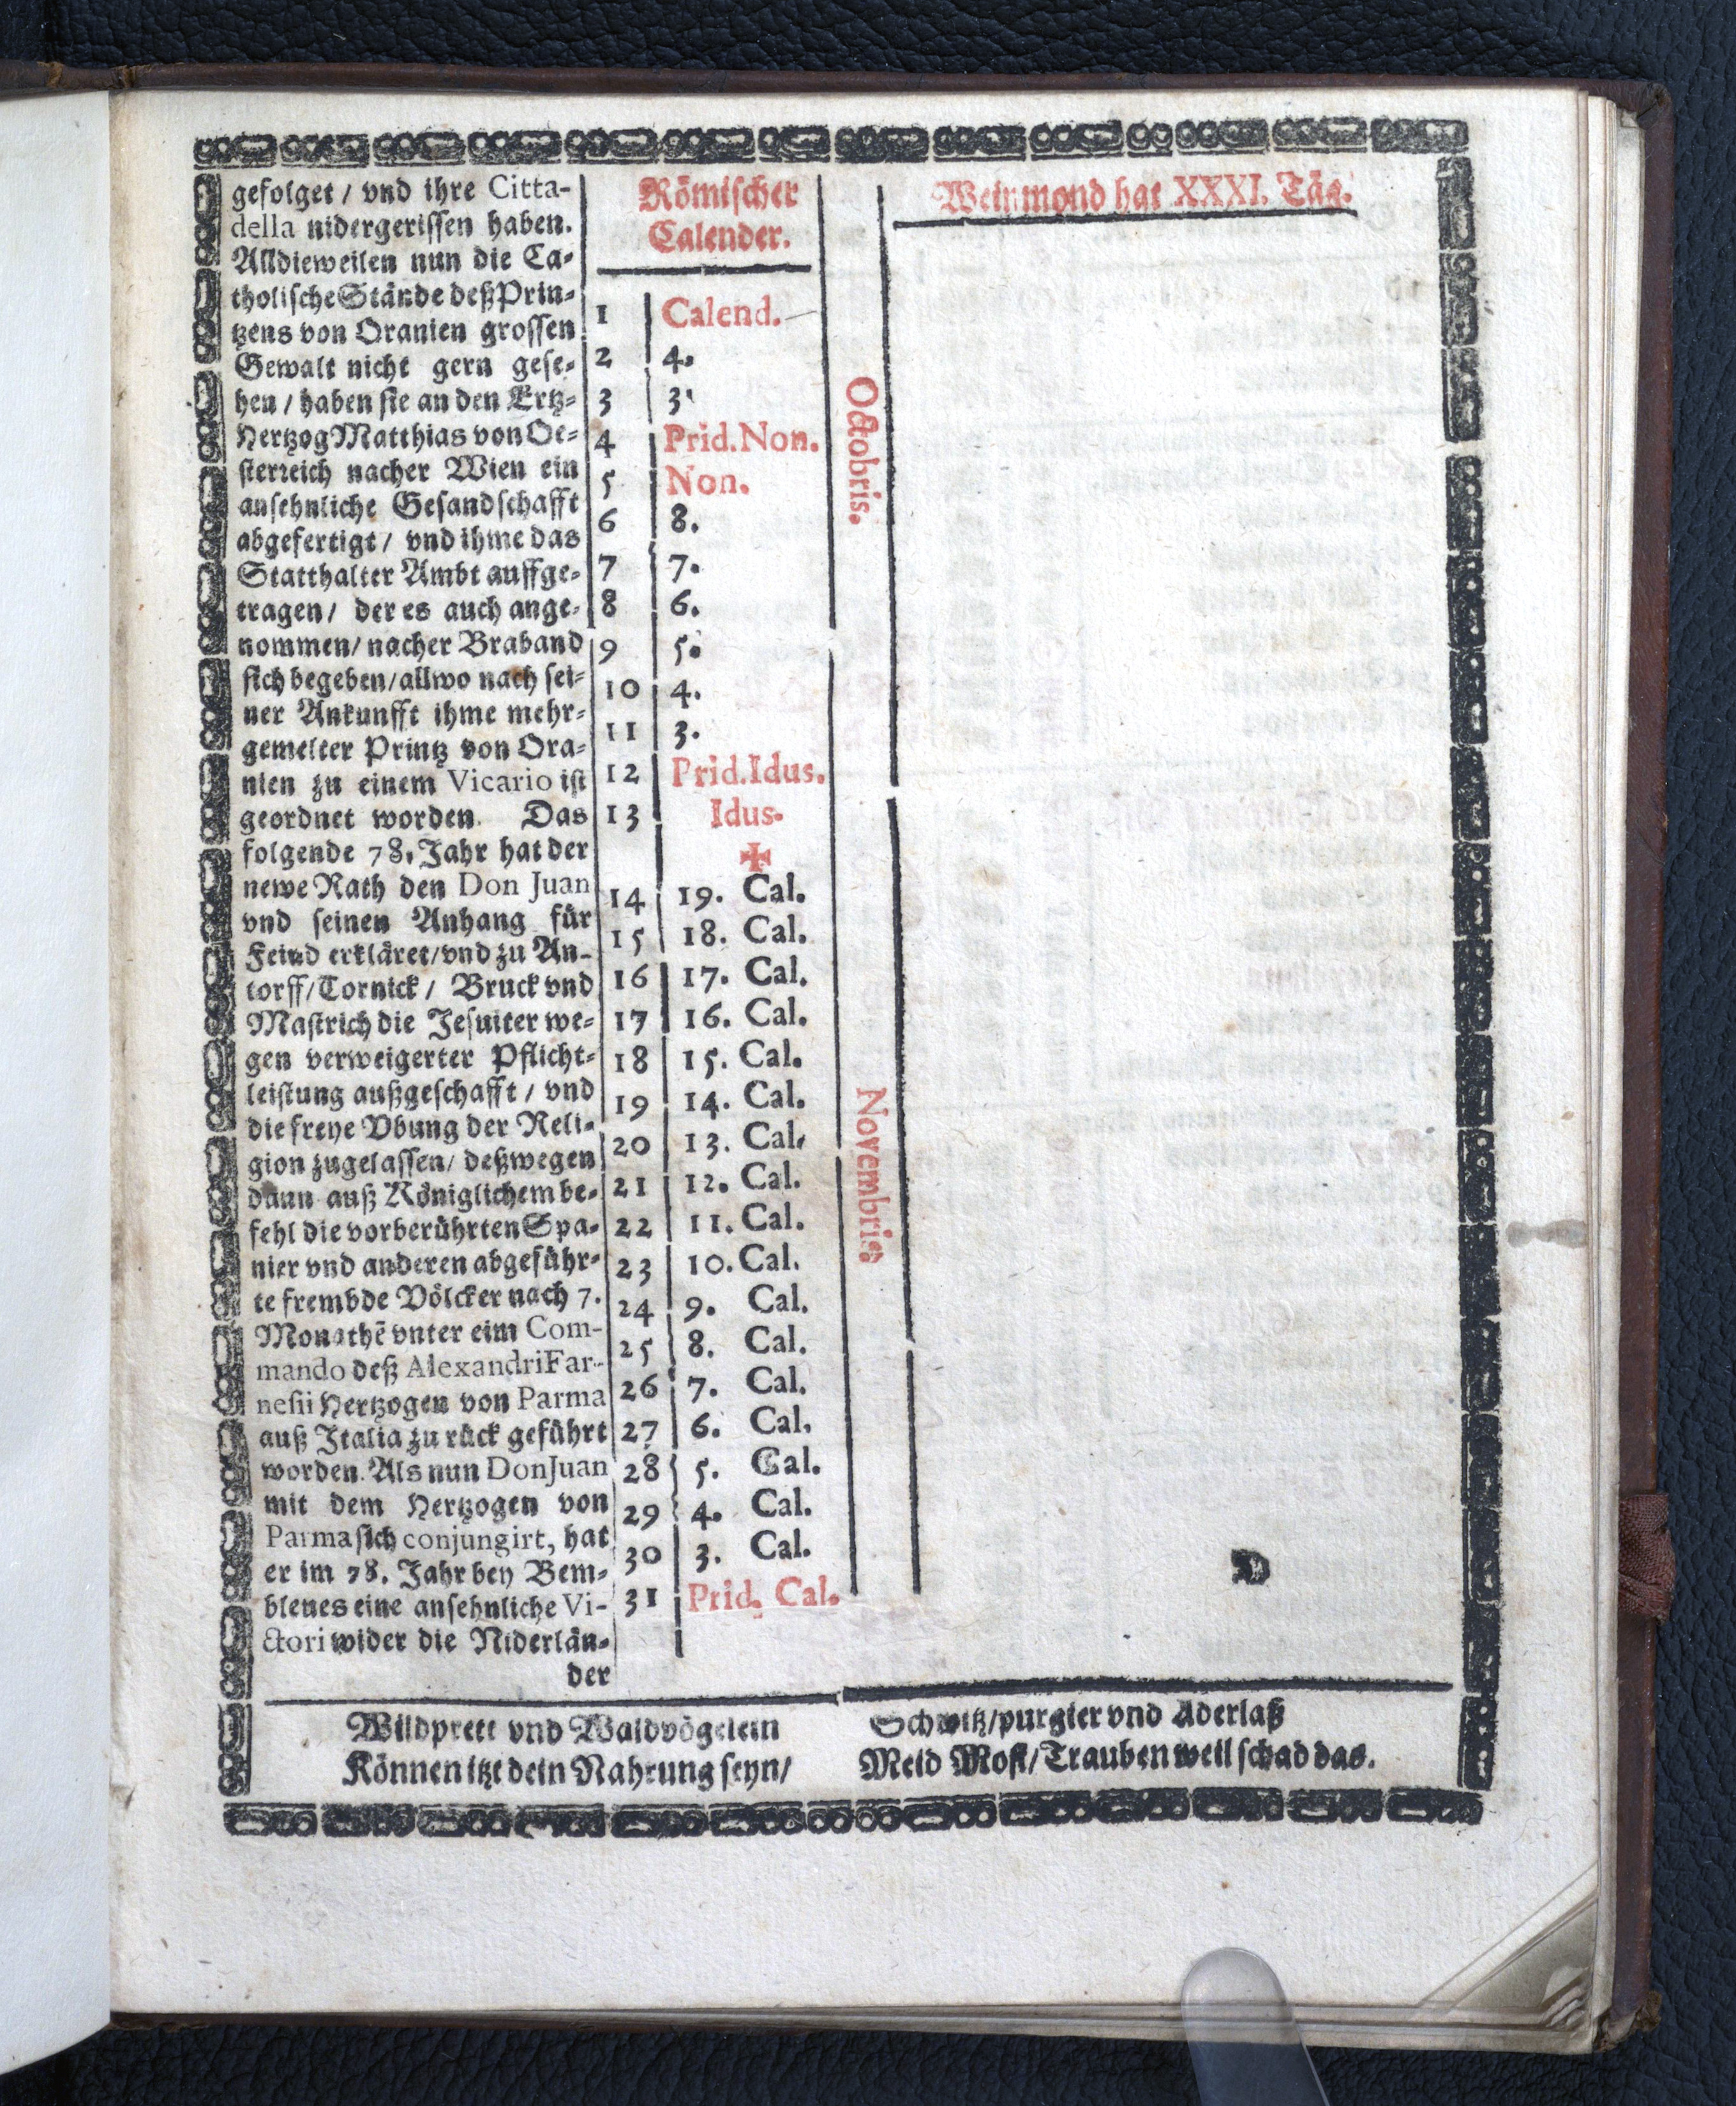 gefolget / vnd ihre Citta-
della nidergerissen haben.
Alldieweilen nun die Ca-
tholische Stände deß Prin-
tzens von Oranien grossen
Gewalt nicht gern gese-
hen / haben sie an den Ertz-
Hertzog Matthias von Oe-
sterreich nacher Wien ein
ansehnliche Gesandschafft
abgefertigt / vnd ihme das
Statthalter Ambt auffge-
tragen / der es auch ange-
nommen / nacher Braband
sich begeben / allwo nach sei-
ner Ankunfft ihme mehr-
gemelter Printz von Ora-
nien zu einem Vicario ist
geordnet worden. Das
folgende 78. Jahr hat der
newe Rath den Don Juan
vnd seinen Anhang für
Feind erkläret / vnd zu An-
torff / Tornick / Bruck vnd
Mastrich die Jesuiter we-
gen verweigerter Pflicht-
leistung außgeschafft / vnd
die freye Vbung der Reli-
gion zugelassen / deßwegen
dann auß Königlichem be-
fehl die vorberührten Spa-
nier vnd anderen abgeführ-
te frembde Völcker nach 7.
Monathē vnter eim Com-
mando deß Alexandri Far-
nesii Hertzogen von Parma
auß Italia zu rück geführt
worden. Als nun Don Juan
mit dem Hertzogen von
Parma sich conjungirt, hat
er im 78. Jahr bey Bem-
blenes eine ansehnliche Vi-
ctori wider die Niderlän-
der
Römischer
Calender.
1 Calend.
2 4.
3 3.
4 Prid. Non.
5 Non.
6 8.
7 7.
8 6.
9 5.
10 4.
11 3.
12 Prid. Idus.
13 Idus.
✠
14 19. Cal.
15 18. Cal.
16 17. Cal.
17 16. Cal.
18 15. Cal.
19 14. Cal.
20 13. Cal.
21 12. Cal.
22 11. Cal.
23 10. Cal.
24 9. Cal.
25 8. Cal.
26 7. Cal.
27 6. Cal.
28 5. Cal.
29 4. Cal.
30 3. Cal.
31 Prid. Cal.
Octobris.
Novembris
Weinmond hat XXXI. Täg.
D
Wildprett vnd Waldvögelein
Können itzt dein Nahrung seyn /
Schwitz / purgier vnd Aderlaß
Meid Most / Trauben weil schad das.